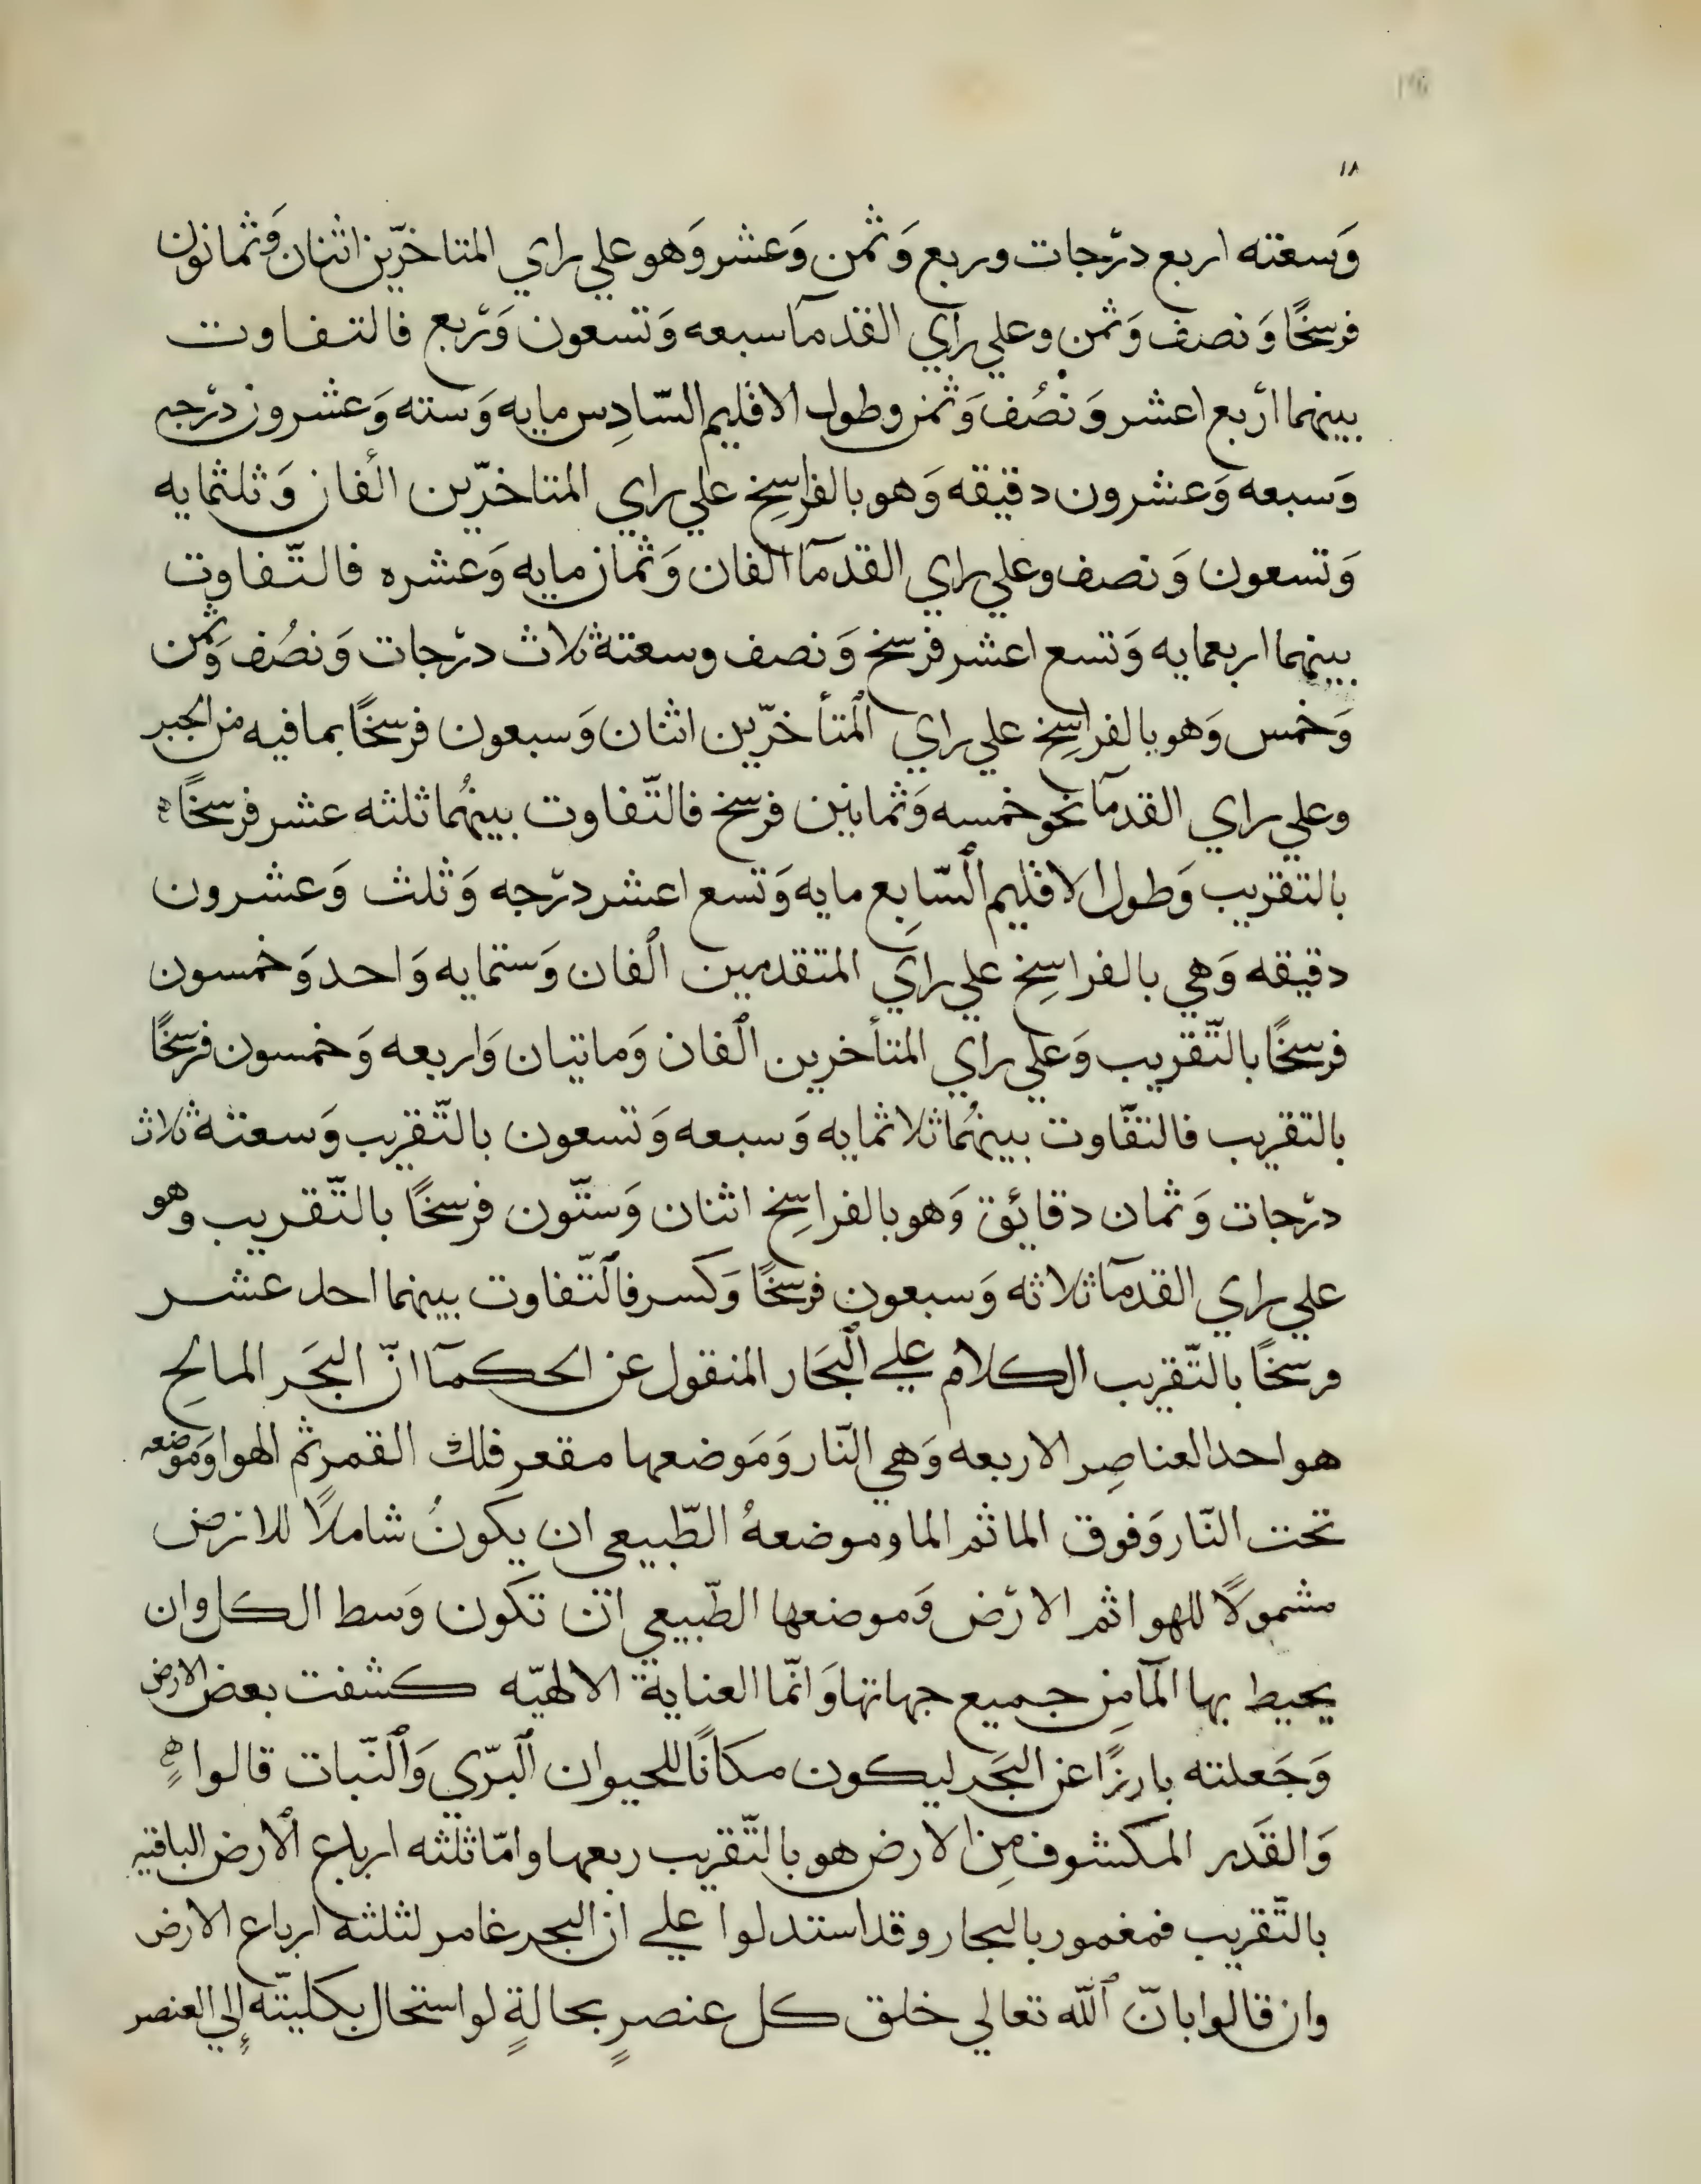 ١٨
وَسعته اربع درجات وربع وَثمن وَعشر وَهو علي راي المتاخرّين اثنان وَثمانون
فرسخًا وَنصف وَثمن وعلي راي القدمآ سبعه وَتسعون وَربع فالتفاوت
بينهما اربع اعشر وَنصُف وَثمن وطول الاقليم السّادِس مايه وَسته وَعشرون درجه
وَسبعه وَعشرون دقيقه وَهو بالفراسِخ علي راي المتاخرّين الفان وَثلثمايه
وَتسعون وَنصف وعلي راي القدمآ الفان وَثمان مايه وَعشره فالتّفاوت
بينهما اربعمايه وَتسع اعشر فرسخ وَنصف وسعتة ثلاث درجات وَنصُف وَثمن
وَخمس وَهو بالفراسِخ علي راي المتأخرّين اثنان وَسبعون فرسخًا بما فيه من الجبر
وعلي راي القدمآ نحو خمسه وَثمانين فرسخ فالتّفاوت بينهُما ثلثه عشر فرسخًا ه
بالتقريب وَطول الاقليم السّابِع مايه وَتسع اعشر درجه وَثلث وَعشرون
دقيقه وَهي بالفراسِخ علي راي المتقدمين الفان وَستمايه وَاحد وَخمسون
فرسخًا بالتّقريب وَعلي راي المتأخرين الفان وَماتيان وَاربعه وَخمسون فرسخًا
بالتقريب فالتفّاوت بينهُما ثلاثمايه وَسبعه وَتسعون بالتّقريب وَسعتة ثلاث
درجات وَثمان دقائق وَهو بالفراسِخ اثنان وَستّون فرسخًا بالتّقريب وهو
علي راي القدمآ ثلاثه وَسبعون فرسخًا وَكسر فالتّفاوت بينهما احد عشر
فرسخًا بالتّقريب الكلام علي البحَار المنقول عن الحكمآ انّ البحَر المالحِ
هو احد العناصِر الاربعه وَهي النّار وَمَوضعها مقعر فلك القمر ثم الهوا وَموضعه
تحت النّار وَفوق الما ثم الما وموضعهُ الطّبيعي ان يكونُ شاملًا للارض
مشمولًا للهوا ثم الارض وَموضعها الطّبيعي ان تكون وَسط الكل وان
يحيط بها المآ مِن جميع جهاتها وَانّما العناية الالهيّه كشفت بعض الارض
وَجَعلته بارزًا عن البحَر ليكون مكانًا للحيوان البرّي وَالنّبات قالوا ه
وَالقَدر المكشوف مِن الارض هو بالتّقريب ربعها وامّا ثلثه ارباع الارض الباقيه
بالتّقريب فمغمور بالبحار وقد استدلوا علي ان البحر غامر لثلثة ارباع الارض
وان قالوا بانّ الله تعالي خلق كل عنصرٍ بحالةٍ لو استحال بكليتّه إلي العنصر